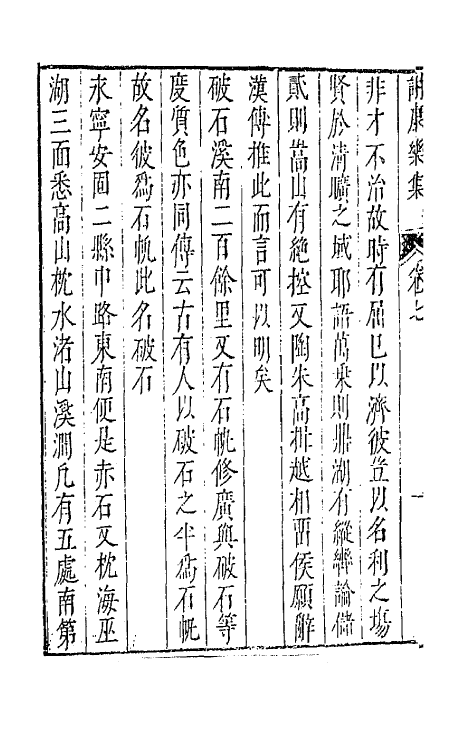 謝康樂集 卷七 一
非才不治故時有屈己以濟彼豈以名利之塲
賢於清曠之域耶語萬乘則鼎湖有縱轡論儲
貳則嵩山有絶控又陶朱高揖越相畱侯願辭
漢傅推此而言可以明矣
破石溪南二百餘里又有石帆修廣與破石等
度質色亦同傳云古有人以破石之半爲石帆
故名彼爲石帆此名破石
永寧安固二縣中路東南便是赤石又枕海巫
湖三面悉高山枕水渚山溪澗凡有五處南第